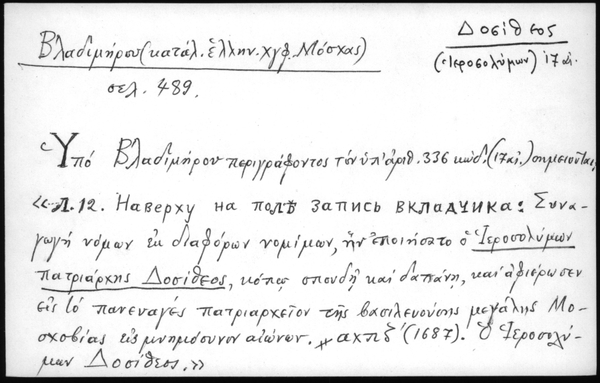 Βλαδιμήρου (κατάλ. ἑλλην. χγφ. Μόσχας)
Δοσίθεος
(Ἱεροσολύμων) 17 αἰ.
σελ. 489.
Ὑπό Βλαδιμήρου περιγράφοντος τόν ὑπ' ἀριθ. 336 κώδ. (17 αἰ.) σημειοῦται,
«Л. 12. Наверху на полѣ запись вкладчика: Συνα-
γωγή νόμων ἐκ διαφόρων νομίμων, ἥν ἐποιήσατο ὁ Ἱεροσολύμων
πατριάρχης Δοσίθεος, κόπῳ σπουδῇ καί δαπάνῃ, καί ἀφιέρωσεν
εἰς τό παναγές πατριαρχεῖον τῆς βασιλευούσης μεγάλης Μο-
σχοβίας εἰς μνημόσυνον αἰώνων. ͵αχπζ΄ (1687). Ὁ Ἱεροσολύ-
μων Δοσίθεος.»